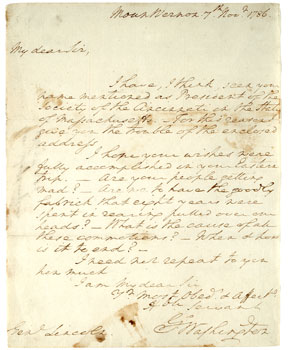 Mount Vernon 7th Novr. 1786.
My dear Sir,
I have, I think, seen your
name mentioned as President of the
Society of the Cincinnati in the State
of Massachusetts. - For this reason I
give you the trouble of the enclosed
address.
I hope your wishes were
fully accomplished in your Eastern
trip. - Are your people getting
mad? - Are we to have the goodly
fabrick that eight years were
spent in rearing pulled over our
heads? - What is the cause of all
these commotions? - When & how
is it to end? -
I need not repeat to you
how much
I am My dear Sir
Yr. most Obedt. & affecte.
Hble Servant
Go Washington
Genl. Lincoln.